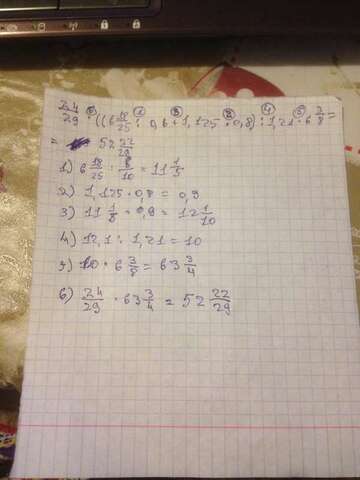 6 1 3 2 4 5
24/29 · ((6 18/25 : 0,6 + 1,125 · 0,8) : 1,21 · 6 3/8 =
= 52 22/29
1) 6 18/25 : 6/10 = 11 1/5
2) 1,125 · 0,8 = 0,9
3) 11 1/5 + 0,9 = 12 1/10
4) 12,1 : 1,21 = 10
5) 10 · 6 3/8 = 63 3/4
6) 24/29 · 63 3/4 = 52 22/29